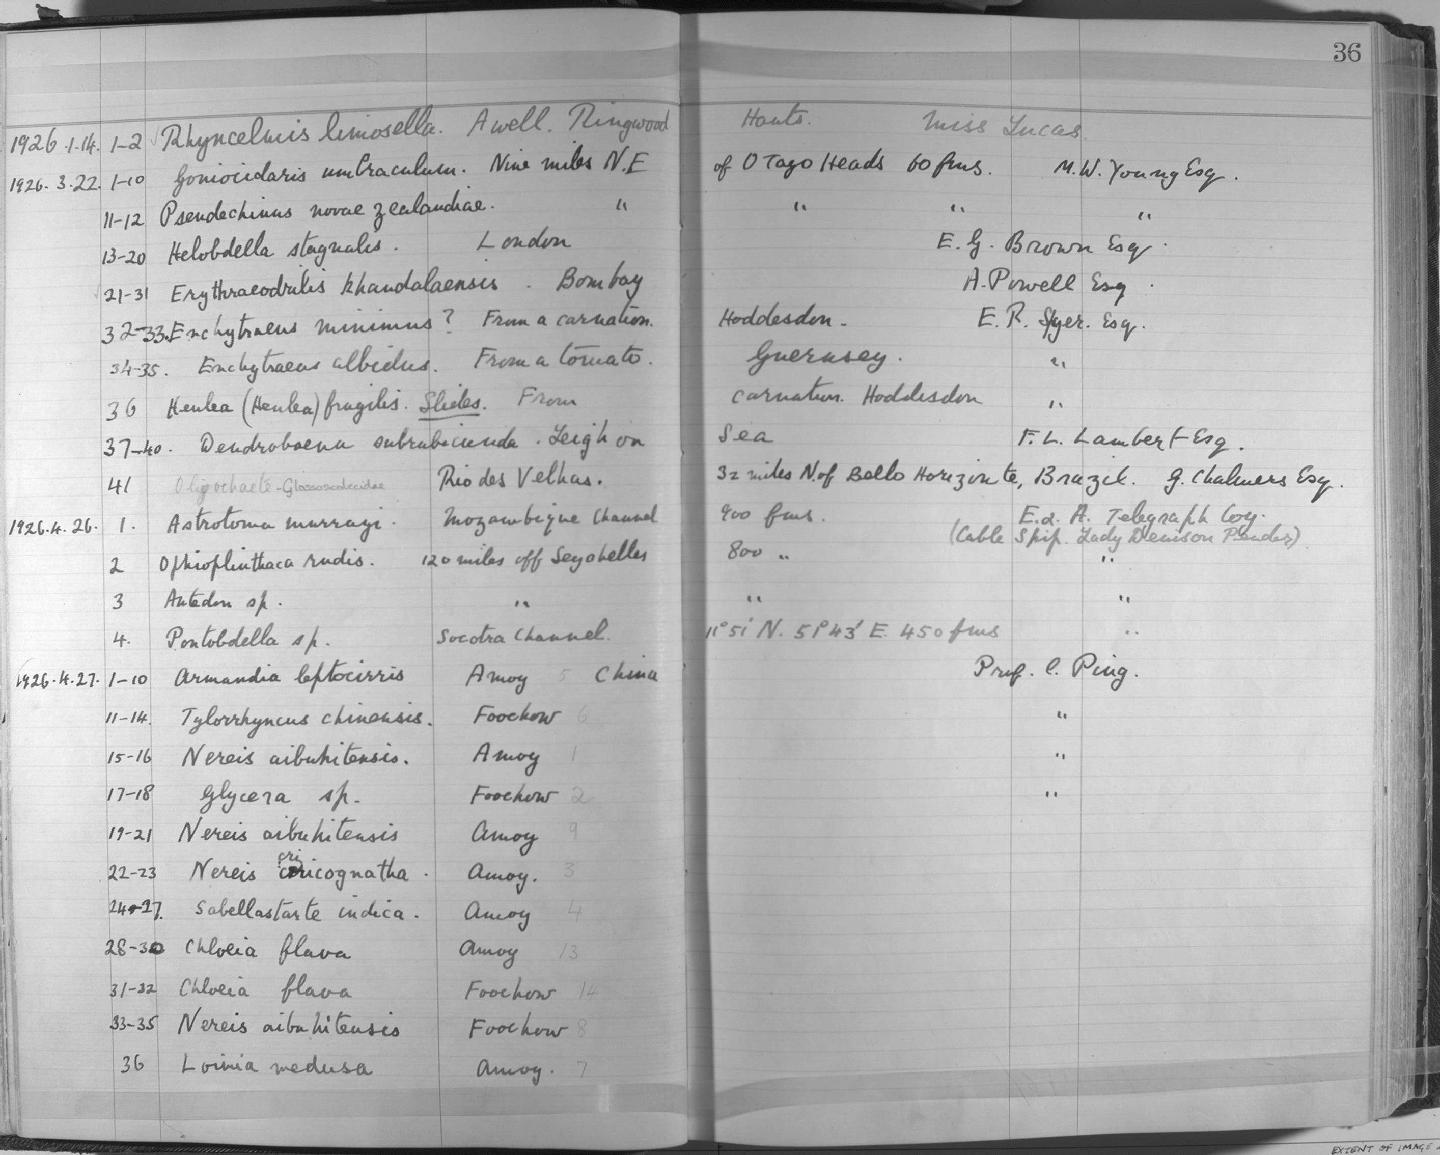 36
1926.1.14. 1-2 Rhyncelmis limosella. A well. Ringwood Hants. Miss Lucas.
1926.3.22. 1-10 Goniocidaris umbraculum. Nine miles N.E of Otago Heads 60 fms. M.W. Young Esq.
11-12 Pseudechinus novae zealandiae. " " " "
13-20 Helobdella stagnalis. London E.G. Brown Esq.
21-31 Erythraeodrilis khandalaensis. Bombay A. Powell Esq.
32-33. Enchytraeus minimus? From a carnation. Hoddesdon. E.R. Speyer. Esq.
34-35. Enchytraeus albidus. From a tomato. Guernsey. "
36 Henlea (Henlea) fragilis. Slides. From carnation. Hoddesdon "
37-40. Dendrobaena subrubicunda. Leigh on Sea F.L. Lambert Esq.
41 Oligochaete-Glossoscolecidae Rio des Velhas. 32 miles N. of Bello Horizonte, Brazil. G. Chalmers Esq.
1926.4.26. 1. Astrotoma murrayi. Mozambique Channel 900 fms. E. & A. Telegraph Coy.
(Cable Ship. Lady Denison Pender)
2 Ophioplinthaca rudis. 120 miles off Seychelles 800 " "
3 Antedon sp. " " "
4. Pontobdella sp. Socotra Channel. 11° 51' N. 51° 43' E. 450 fms "
1926.4.27. 1-10 Armandia leptocirris Amoy 5 China Prof. C. Ping.
11-14. Tylorrhyncus chinensis. Foochow 6 "
15-16 Nereis aibuhitensis. Amoy 1 "
17-18 Glycera sp. Foochow 2 "
19-21 Nereis aibuhitensis Amoy 9
22-23 Nereis ericognatha. Amoy. 3
24-27. Sabellastarte indica. Amoy 4
28-30 Chloeia flava Amoy 13
31-32 Chloeia flava Foochow 14
33-35 Nereis aibuhitensis Foochow 8
36 Loimia medusa Amoy. 7
EXTENT OF IMAGE